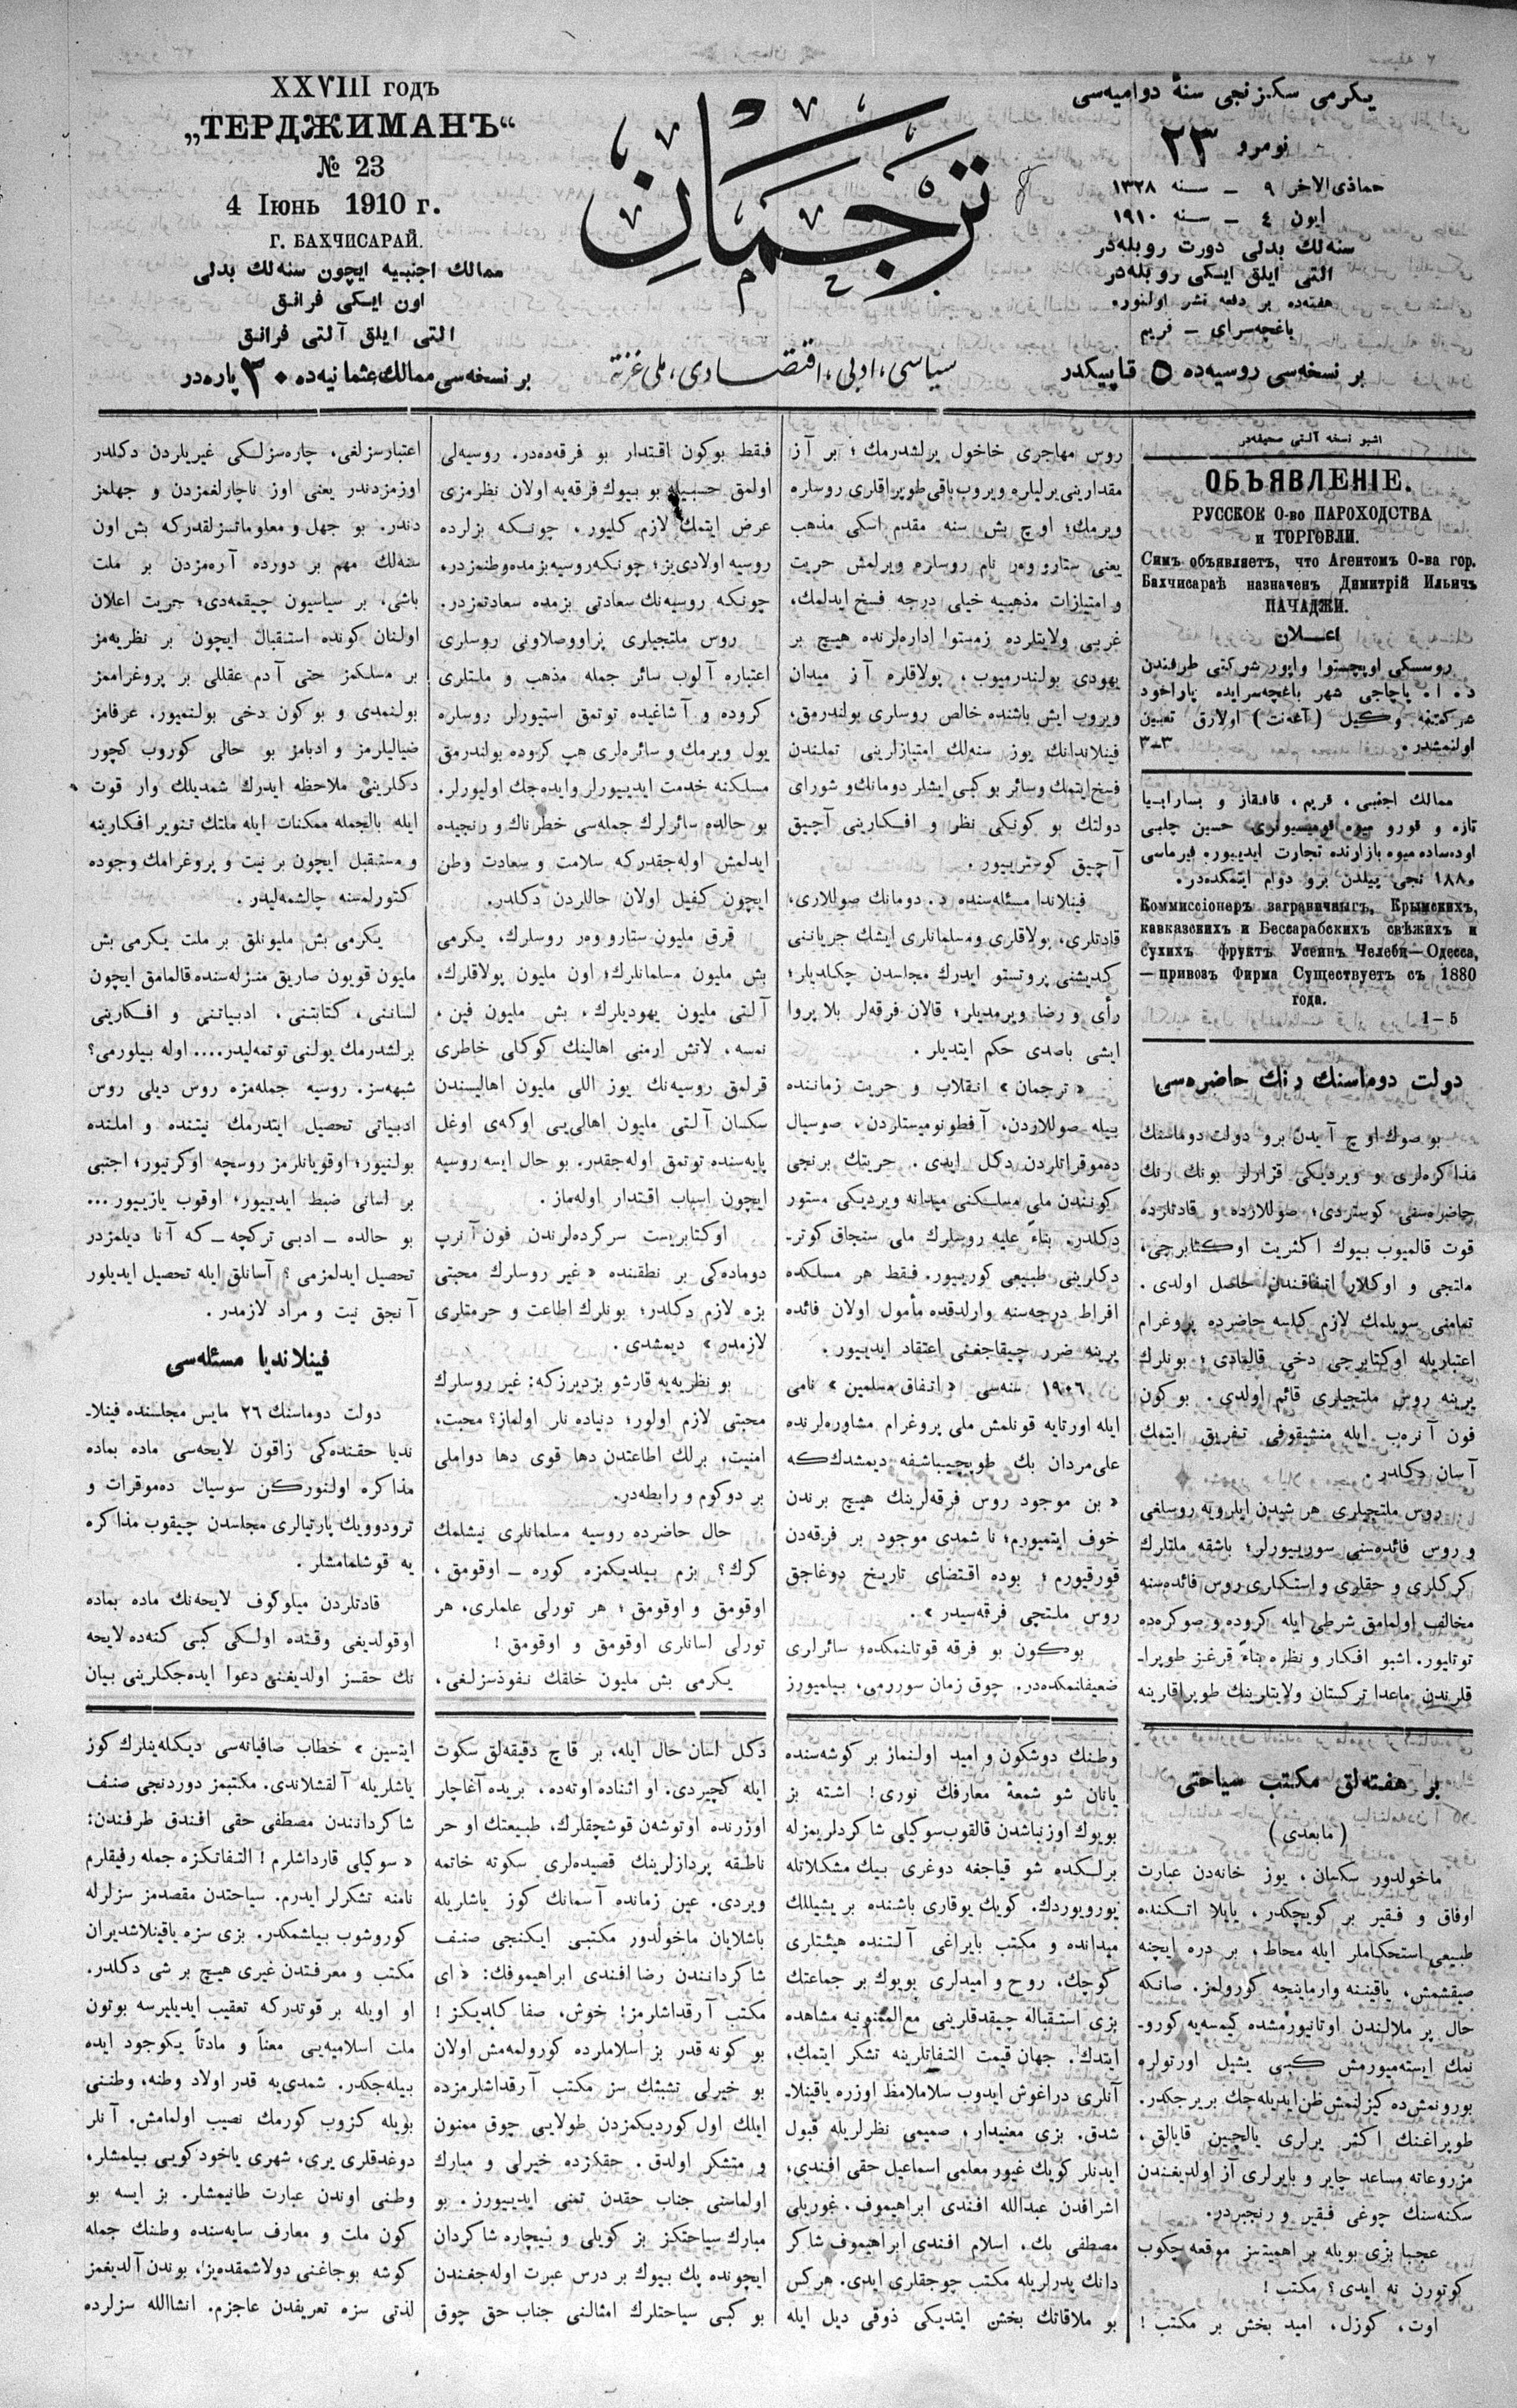 XXVIII годъ
„ТЕРДЖИМАНЪ“
№ 23
4 Іюнь 1910 г.
Г. БАХЧИСАРАЙ.
ممالك اجنبیه ایچون سنه‌لك بدلی
اون ایکی فرانق
التی ایلق آلتی فرانق
بر نسخه‌سی ممالك عثمانیه‌ده ٣٠ پاره‌در
ترجمان
سیاسی، ادبی، اقتصادی، ملی غزته
یکرمی سکزنجی سنهٔ دوامیه‌سی
نومرو ٢٣
جماذی‌الاخر ٩ – سنه ١٣٢٨
ایون ٤ – سنه ١٩١٠
سنه‌لك بدلی دورت روبله‌در
التی ایلق ایکی روبله‌در
هفته‌ده بر دفعه نشر اولنور.
باغچه‌سرای – قریم
بر نسخه‌سی روسیه‌ده ٥ قاپیکدر
اشبو نسخه آلتی صحیفه‌در
ОБЪЯВЛЕНІЕ.
РУССКОК О-во ПАРОХОДСТВА
и ТОРГОВЛИ.
Симъ объявляетъ, что Агентомъ О-ва гор.
Бахчисараѣ назначенъ Димитрій Ильичъ
ПАЧАДЖИ.
اعلان
روسسکی اوپچستوا واپور شرکتی طرفندن
د. ا. پاچاجی شهر باغچه‌سرایده پاراخود
شرکتنه وکیل (آغه‌نت) اولارق تعیین
اولنمشدر. ٣–٣
ممالك اجنبی، قریم، قافقاز و بسارابیا
تازه و قورو میوه قومیسیونری حسین چلبی
اوده‌ساده میوه بازارنده تجارت ایدییور. فیرماسی
١٨٨٠ نجی ییلدن برو دوام ایتمکده‌در.
Коммиссіонеръ заграничныгъ, Крымскихъ,
кавказскихъ и Бессарабскихъ свѣжихъ и
сухихъ фруктъ Усеинъ Челеби—Одесса,
—привозъ Фирма Существуетъ съ 1880
года.
1–5
دولت دوماسنك رنك حاضره‌سی
بو صوك اوچ آیدن برو دولت دوماسنك
مذاکره‌لری و ویردیکی قرارلر بونك رنك
حاضره‌سنی کوستردی؛ صوللارده و قادتلرده
قوت قالمیوب بیوك اکثریت اوکتابرجی،
ملتجی و اوکلار اتفاقندن حاصل اولدی.
تمامنی سویلمك لازم کلسه حاضرده پروغرام
اعتباریله اوکتابرجی دخی قالمادی؛ بونلرك
یرینه روس ملتجیلری قائم اولدی. بوکون
فون آنره‌پ ایله منشیقوفی تفریق ایتمك
آسان دکلدر.
روس ملتجیلری هر شیدن ایلرویه روسلغی
و روس فائده‌سنی سورییورلر؛ باشقه ملتلرك
کرکلری و حقلری و استکلری روس فائده‌سنه
مخالف اولمامق شرطی ایله کروده و صوکره‌ده
توتلیور. اشبو افکار و نظره بناءً قرغز طوپرا-
قلرندن ماعدا ترکستان ولایتلرینك طوپراقلرینه
روس مهاجری خاخول یرلشدرمك؛ بر آز
مقدارینی یرلیلره ویروب باقی طوپراقلری روسلره
ویرمك؛ اوچ بش سنه مقدم اسکی مذهب
یعنی ستاروو‌ه‌ر نام روسلره ویرلمش حریت
و امتیازات مذهبیه خیلی درجه فسخ ایدلمك،
غربی ولایتلرده زمستوا اداره‌لرنده هیچ بر
یهودی بولندرمیوب، پولاقلره آز میدان
ویروب ایش باشنده خالص روسلری بولندرمق،
فینلاندانك یوز سنه‌لك امتیازلرینی تملندن
فسخ ایتمك وسائر بو کبی ایشلر دومانك و شورای
دولتك بو کونکی نظر و افکارینی آچیق
آچیق کوستریيور.
فینلاندا مسئله‌سنده د. دومانك صوللاری،
قادتلری، پولاقلری و مسلمانلری ایشك جریانی
کدیشنی پروتستو ایدرك مجلسدن چکلدیلر؛
رأی و رضا ویرمدیلر؛ قالان فرقه‌لر بلا پروا
ایشی باصدی حکم ایتدیلر.
«ترجمان» انقلاب و حریت زماننده
بیله صوللاردن، آفطونومیستلردن، صوسیال
ده‌موقراتلردن دکل ایدی. حریتك برنجی
کونندن ملی مسلکنی میدانه ویردیکی مستور
دکلدر. بناءً علیه روسلرك ملی سنجاق کوتر-
دکلرینی طبیعی کورییور. فقط هر مسلکده
افراط درجه‌سنه وارلدقده مأمول اولان فائده
یرینه ضرر چیقاجغنی اعتقاد ایدییور.
١٩٠٦ سنه‌سی «اتفاق مسلمین» نامی
ایله اورتایه قونلمش ملی پروغرام مشاوره‌لرنده
علی‌مردان بك طوپچیباشفه دیمشدك که
«بن موجود روس فرقه‌لرینك هیچ برندن
خوف ایتمیورم؛ نا شمدی موجود بر فرقه‌دن
قورقیورم؛ بوده اقتضای تاریخ دوغاجق
روس ملتجی فرقه‌سیدر».
بوکون بو فرقه قوتلنمکده؛ سائرلری
ضعیفلنمکده‌در. چوق زمان سوررمی، بیلمیورز
فقط بوکون اقتدار بو فرقه‌ده‌در. روسیه‌لی
اولمق حسبیله بو بیوك فرقه‌یه اولان نظرمزی
عرض ایتمك لازم کلیور. چونکه بزلرده
روسیه اولادی‌یز؛ چونکه روسیه بزمده وطنمزدر،
چونکه روسیه‌نك سعادتی بزمده سعادتمزدر.
روس ملتجیلری پراووصلاونی روسلری
اعتباره آلوب سائر جمله مذهب و ملتلری
کروده و آشاغیده توتمق استیورلر روسلره
یول ویرمك و سائره‌لری هپ کروده بولندرمق
مسلکنه خدمت ایدییورلر وایده‌جك اولیورلر.
بو حالده سائرلرك جمله‌سی خطرناك و رنجیده
ایدلمش اوله‌جقدر که سلامت و سعادت وطن
ایچون کفیل اولان حاللردن دکلدر.
قرق ملیون ستاروو‌ه‌ر روسلرك، یکرمی
بش ملیون مسلمانلرك؛ اون ملیون پولاقلرك،
آلتی ملیون یهودیلرك، بش ملیون فین،
نمسه، لاتش ارمنی اهالینك کوکلی خاطری
قرلمق روسیه‌نك یوز اللی ملیون اهالیسندن
سکسان آلتی ملیون اهالی‌یی اوکه‌ی اوغل
پایه‌سنده توتمق اوله‌جقدر. بو حال ایسه روسیه
ایچون اسباب اقتدار اوله‌ماز.
اوکتابریست سرکرده‌لرندن فون آنرپ
دوماده‌کی بر نطقنده «غیر روسلرك محبتی
بزه لازم دکلدر؛ بونلرك اطاعت و حرمتلری
لازمدر» دیمشدی.
بو نظریه‌یه قارشو بز دیرزکه: غیر روسلرك
محبتی لازم اولور؛ دنیاده نلر اولماز؟ محبت،
امنیت، برلك اطاعتدن دها قوی دها دواملی
بر دوکوم و رابطه‌در.
حال حاضرده روسیه مسلمانلری نیشلمك
کرك؟ بزم بیلدیکمزه کوره – اوقومق،
اوقومق و اوقومق؛ هر تورلی علملری، هر
تورلی لسانلری اوقومق و اوقومق!
یکرمی بش ملیون خلقك نفوذسزلغی،
اعتبارسزلغی، چاره‌سزلکی غیریلردن دکلدر
اوزمزدندر یعنی اوز ناچارلغمزدن و جهلمز
دندر. بو جهل و معلوماتسزلقدر که بش اون
سنه‌لك مهم بر دورده آره‌مزدن بر ملت
باشی، بر سیاسیون چیقمه‌دی؛ حریت اعلان
اولنان کونده استقبال ایچون بر نظریه‌مز
بر مسلکمز حتی آدم عقللی بر پروغرامز
بولنمدی و بوکون دخی بولنمیور. عرفامز
ضیالیلرمز و ادبامز بو حالی کوروب کچور
دکلرینی ملاحظه ایدرك شمدیلك وار قوت
ایله بالجمله ممکنات ایله ملتك تنویر افکارینه
و مستقبل ایچون بر نیت و پروغرامك وجوده
کتورلمسنه چالشمه‌لیدر.
یکرمی بش ملیونلق بر ملت یکرمی بش
ملیون قویون صاریق منزله‌سنده قالمامق ایچون
لساننی، کتابتنی، ادبیاتنی و افکارینی
برلشدرمك یولنی توتمه‌لیدر.... اوله بیلورمی؟
شبهه‌سز. روسیه جمله‌مزه روس دیلی روس
ادبیاتی تحصیل ایتدرمك نیتنده و املنده
بولنیور؛ اوقویانلرمز روسچه اوکرنیور؛ اجنبی
بر لسانی ضبط ایدییور؛ اوقوب یازییور...
بو حالده – ادبی ترکچه – که آنا دیلمزدر
تحصیل ایدلمزمی؟ آسانلق ایله تحصیل ایدیلور
آنجق نیت و مراد لازمدر.
فینلاندیا مسئله‌سی
دولت دوماسنك ٢٦ مایس مجلسنده فینلا-
ندیا حقنده‌کی زاقون لایحه‌سی ماده بماده
مذاکره اولنورکن سوسیال ده‌موقرات و
ترودوویك پارتیالری مجلسدن چیقوب مذاکره
یه قوشلمامشلر.
قادتلردن میلوکوف لایحه‌نك ماده بماده
اوقولدیغی وقتده اولکی کبی کنه‌ده لایحه
نك حقسز اولدیغنی دعوا ایده‌جکلرینی بیان
بر هفته‌لق مکتب سیاحتی
(مابعدی)
ماخولدور سکسان، یوز خانه‌دن عبارت
اوفاق و فقیر بر کویچکدر، یایلا اتکنده
طبیعی استحکاملر ایله محاط، بر دره ایچنه
صیقشمش، یاقیننه وارماینجه کورولمز. صانکه
حال پر ملالندن اوتانیورمشده کیمسه‌یه کورو-
نمك ایسته‌میورمش کبی یشیل اورتولره
بورونمش‌ده کیزلنمش ظن ایدیله‌جك بر یرجکدر.
طوپراغنك اکثر یرلری یالچین قایالق،
مزروعاته مساعد چایر و بایرلری آز اولدیغندن
سکنه‌سنك چوغی فقیر و رنجبردر.
عجبا بزی بویله بر اهمیتسز موقعه چکوب
کوتورن نه ایدی؟ مکتب!
اوت، کوزل، امید بخش بر مکتب!
وطنك دوشکون و امید اولنماز بر کوشه‌سنده
یانان شو شمعهٔ معارفك نوری! اشته بز
بویوك اوزنباشدن قالقوب سوکیلی شاکردلریمزله
برلکده شو قیاجغه دوغری بیك مشکلاتله
یورویوردك. کویك یوقاری باشنده بر یشیللك
میدانده و مکتب بایراغی آلتنده هیئتلری
کوچك، روح و امیدلری بویوك بر جماعتك
بزی استقباله چیقدقلرینی مع‌الممنونیه مشاهده
ایتدك. جهان قیمت التفاتلرینه تشکر ایتمك،
آنلری دراغوش ایدوب سلاملامق اوزره یاقینلا-
شدق. بزی معنیدار، صمیمی نظرلریله قبول
ایدنلر کویك غیور معلمی اسماعیل حقی افندی،
اشرافدن عبدالله افندی ابراهیموف، غوریلی
مصطفی بك، اسلام افندی ابراهیموف شاکر
دانك پدرلریله مکتب چوجقلری ایدی. هرکس
بو ملاقاتك بخش ایتدیکی ذوقی دیل ایله
دکل لسان حال ایله، بر قاچ دقیقه‌لق سکوت
ایله کچیردی. او اثناده اوته‌ده، بریده آغاچلر
اوزرنده اوتوشه‌ن قوشچقلرك، طبیعتك او حر
ناطقه پردازلرینك قصیده‌لری سکوته خاتمه
ویردی. عین زمانده آسمانك کوز یاشلریله
باشلایان ماخولدور مکتبی ایکنجی صنف
شاکرداننندن رضا افندی ابراهیموفك: «ای
مکتب آرقداشلرمز! خوش، صفا کلدیکز!
بو کونه قدر بز اسلاملرده کورولمه‌مش اولان
بو خیرلی تشبثك سز مکتب آرقداشلرمزده
ایلك اول کوردیکمزدن طولایی چوق ممنون
و متشکر اولدق. حقکزده خیرلی و مبارك
اولماسنی جناب حقدن تمنی ایدییورز. بو
مبارك سیاحتکز بز کویلی و بیچاره شاکردان
ایچونده پك بیوك بر درس عبرت اوله‌جغندن
بو کبی سیاحتلرك امثالنی جناب حق چوق
ایتسین» خطاب صافیانه‌سی دیکله‌ینلرك کوز
یاشلریله آلقشلاندی. مکتبمز دوردنجی صنف
شاکردانندن مصطفی حقی افندی طرفندن:
«سوکیلی قارداشلرم! التفاتکزه جمله رفیقلرم
نامنه تشکرلر ایدرم. سیاحتدن مقصدمز سزلرله
کوروشوب بیلشمکدر. بزی سزه یاقینلاشدیران
مکتب و معرفتدن غیری هیچ بر شی دکلدر.
او اویله بر قوتدرکه تعقیب ایدیلیرسه بوتون
ملت اسلامیه‌یی معناً و مادتاً یکوجود ایده
بیله‌جکدر. شمدی‌یه قدر اولاد وطنه، وطننی
بویله کزوب کورمك نصیب اولمامش. آنلر
دوغدقلری یری، شهری یاخود کویی بیلمشلر،
وطنی اوندن عبارت طانیمشلر. بز ایسه بو
کون ملت و معارف سایه‌سنده وطنك جمله
کوشه بوجاغنی دولاشمقده‌یز، بوندن آلدیغمز
لذتی سزه تعریفدن عاجزم. انشاالله سزلرده